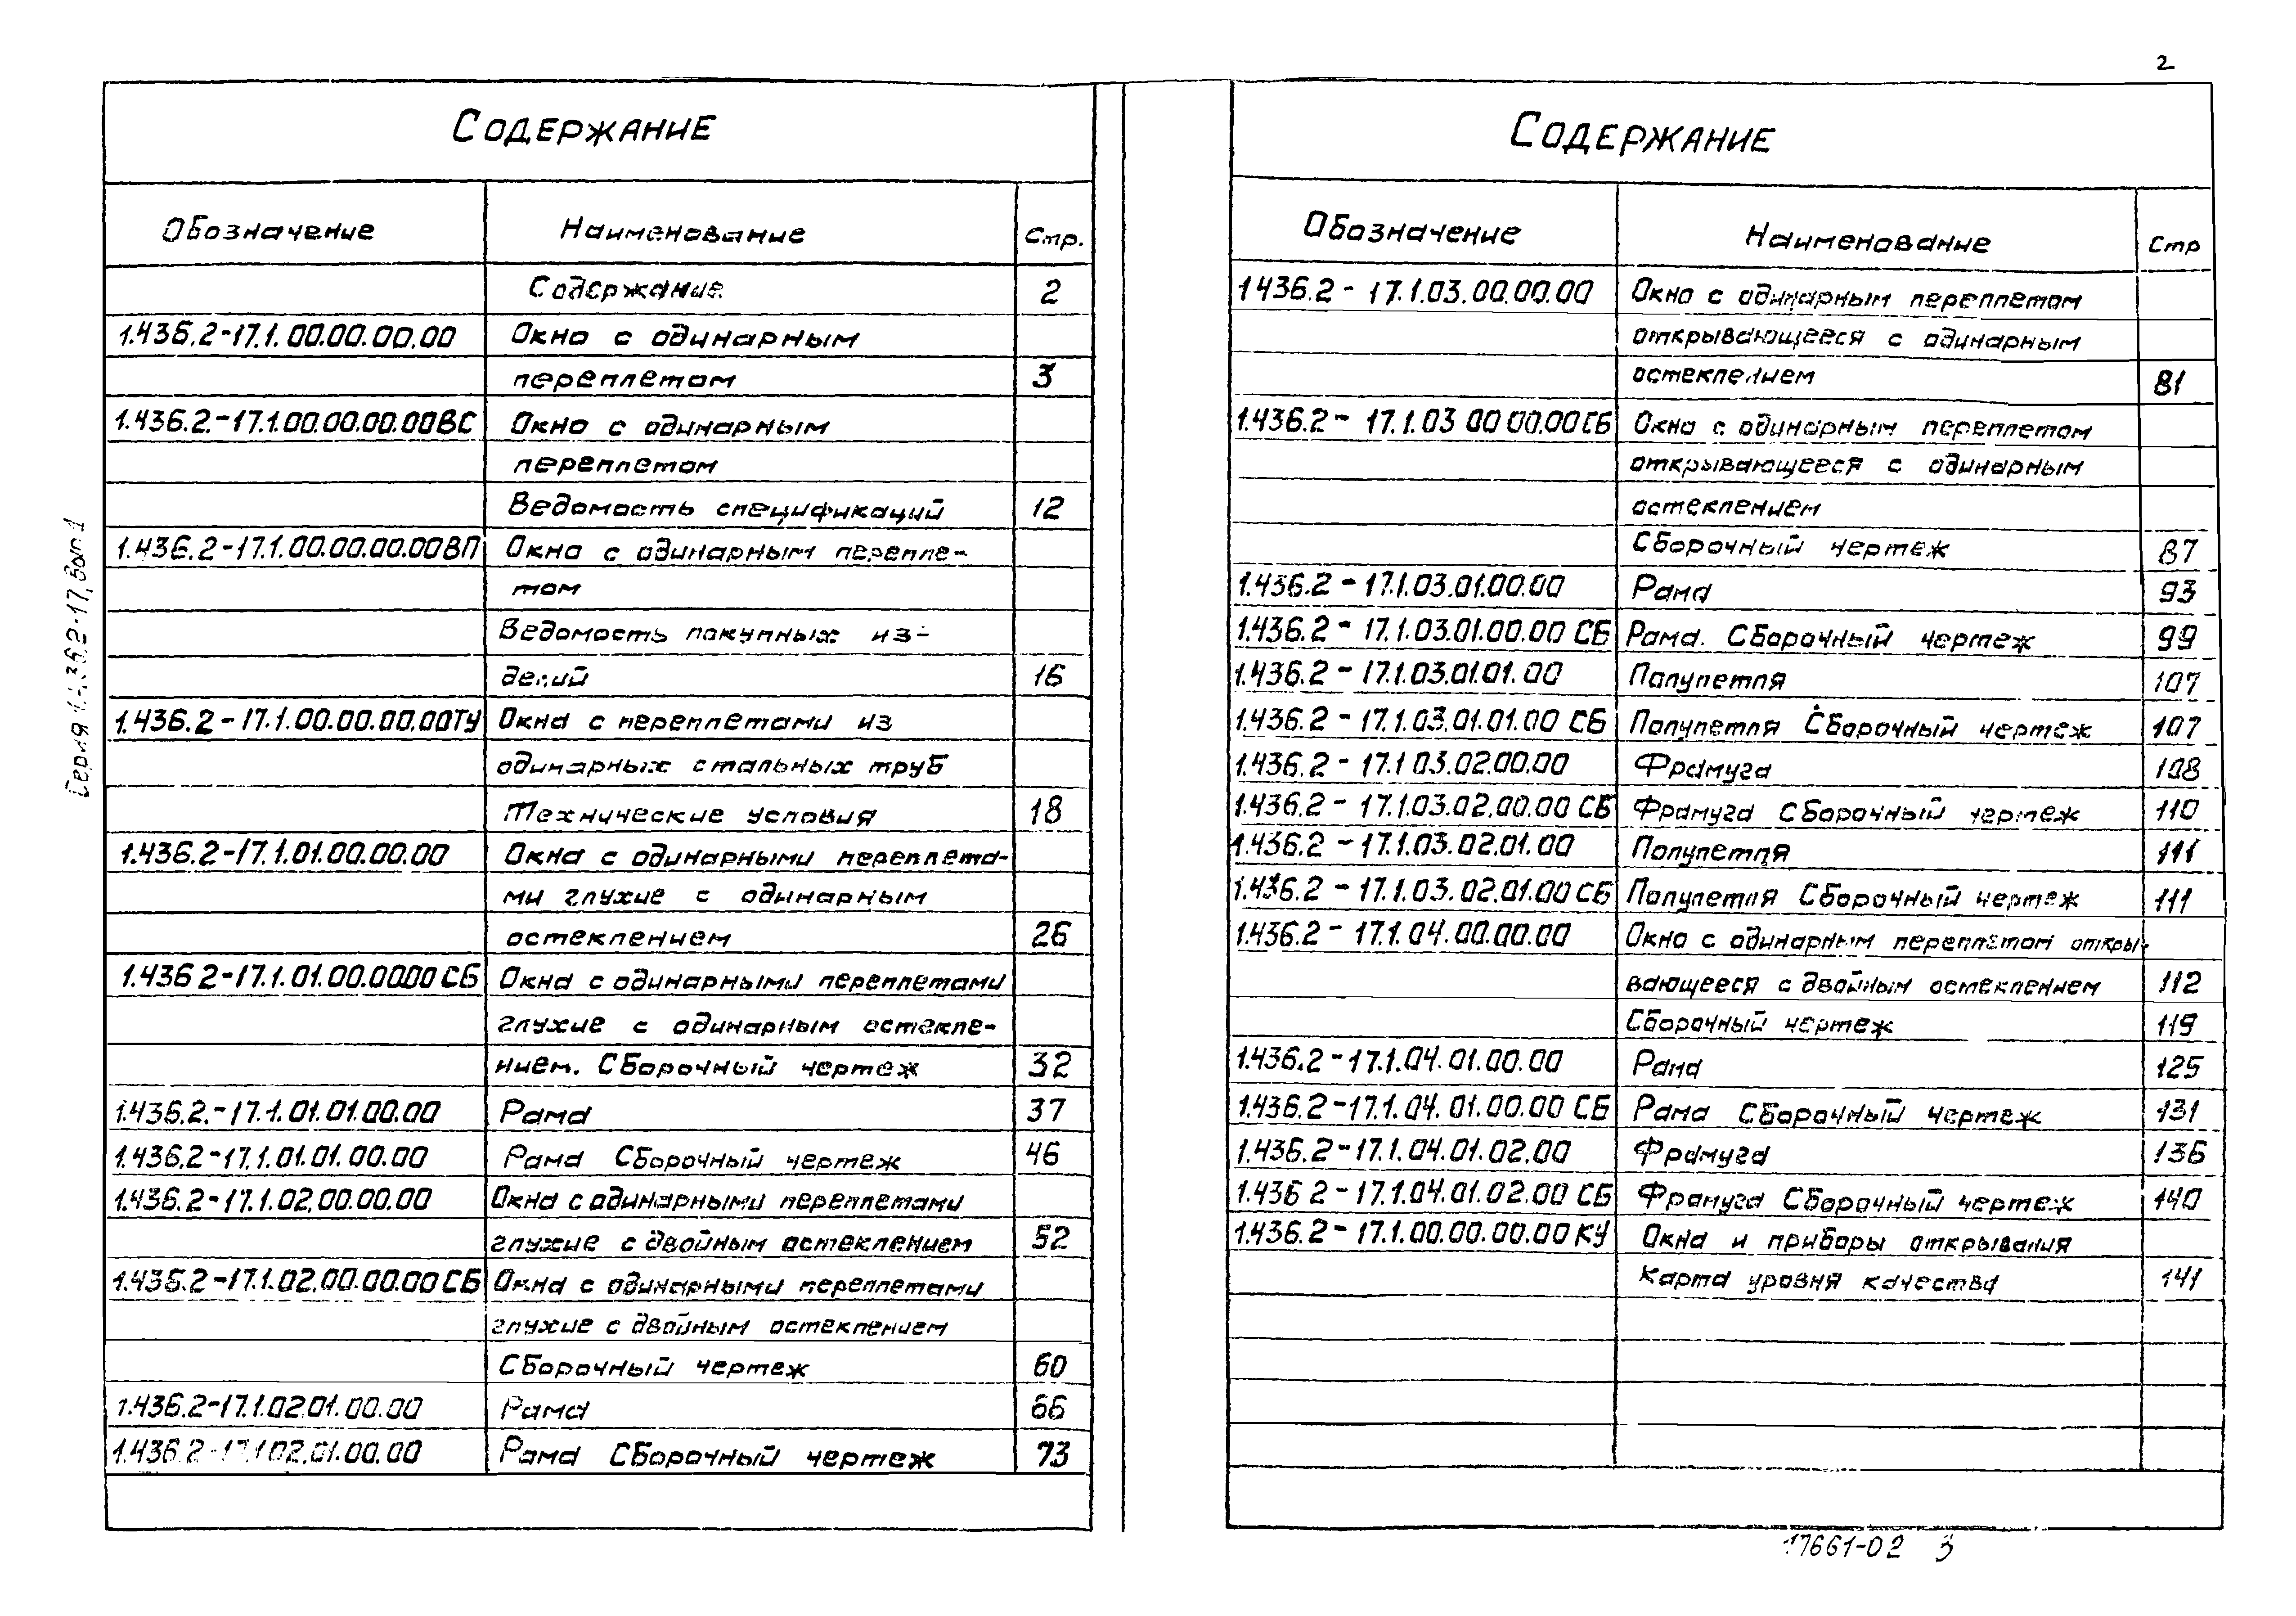 2
Содержание
Обозначение Наименование Стр.
Содержание 2
1.436.2-17.1.00.00.00.00 Окно с одинарным
переплетом 3
1.436.2.-17.1.00.00.00.00ВС Окно с одинарным
переплетом
Ведомость спецификаций 12
1.436.2-17.1.00.00.00.00ВП Окно с одинарным перепле-
том
Ведомость покупных из-
делий 16
1.436.2-17.1.00.00.00.00ТУ Окна с переплетами из
одинарных стальных труб
Технические условия 18
1.436.2-17.1.01.00.00.00 Окна с одинарными переплета-
ми глухие с одинарным
остеклением 26
1.436 2-17.1.01.00.0000 СБ Окна с одинарными переплетами
глухие с одинарным остекле-
нием. Сборочный чертеж 32
1.436.2.-17.1.01.01.00.00 Рама 37
1.436.2-17.1.01.01.00.00 Рама Сборочный чертеж 46
1.436.2-17.1.02.00.00.00 Окна с одинарными переплетами
глухие с двойным остеклением 52
1.436.2-17.1.02.00.00.00 СБ Окна с одинарными переплетами
глухие с двойным остеклением
Сборочный чертеж 60
1.436.2-17.1.02.01.00.00 Рама 66
1.436.2-17.1.02.01.00.00 Рама Сборочный чертеж 73
Серия 1.436.2-17, вып.1
Содержание
Обозначение Наименование Стр
1436.2-17.1.03.00.00.00 Окно с одинарным переплетом
открывающееся с одинарным
остеклением 81
1.436.2-17.1.03 00 00.00 СБ Окно с одинарным переплетом
открывающееся с одинарным
остеклением
Сборочный чертеж 87
1.436.2-17.1.03.01.00.00 Рама 93
1.436.2-17.1.03.01.00.00 СБ Рама. Сборочный чертеж 99
1.436.2-17.1.03.01.01.00 Полупетля 107
1.436.2-17.1.03.01.01.00 СБ Полупетля Сборочный чертеж 107
1.436.2-17.1 03.02.00.00 Фрамуга 108
1.436.2-17.1.03.02.00.00 СБ Фрамуга Сборочный чертеж 110
1.436.2-17.1.03.02.01.00 Полупетля 111
1.436.2-17.1.03.02.01.00 СБ Полупетля Сборочный чертеж 111
1.436.2-17.1.04.00.00.00 Окно с одинарным переплетом откры-
вающееся с двойным остеклением 112
Сборочный чертеж 119
1.436.2-17.1.04.01.00.00 Рама 125
1.436.2-17.1.04.01.00.00 СБ Рама Сборочный чертеж 131
1.436.2-17.1.04.01.02.00 Фрамуга 136
1.436 2-17.1.04.01.02.00 СБ Фрамуга Сборочный чертеж 140
1.436.2-17.1.00.00.00.00 КУ Окна и приборы открывания
Карта уровня качества 141
17661-02 3